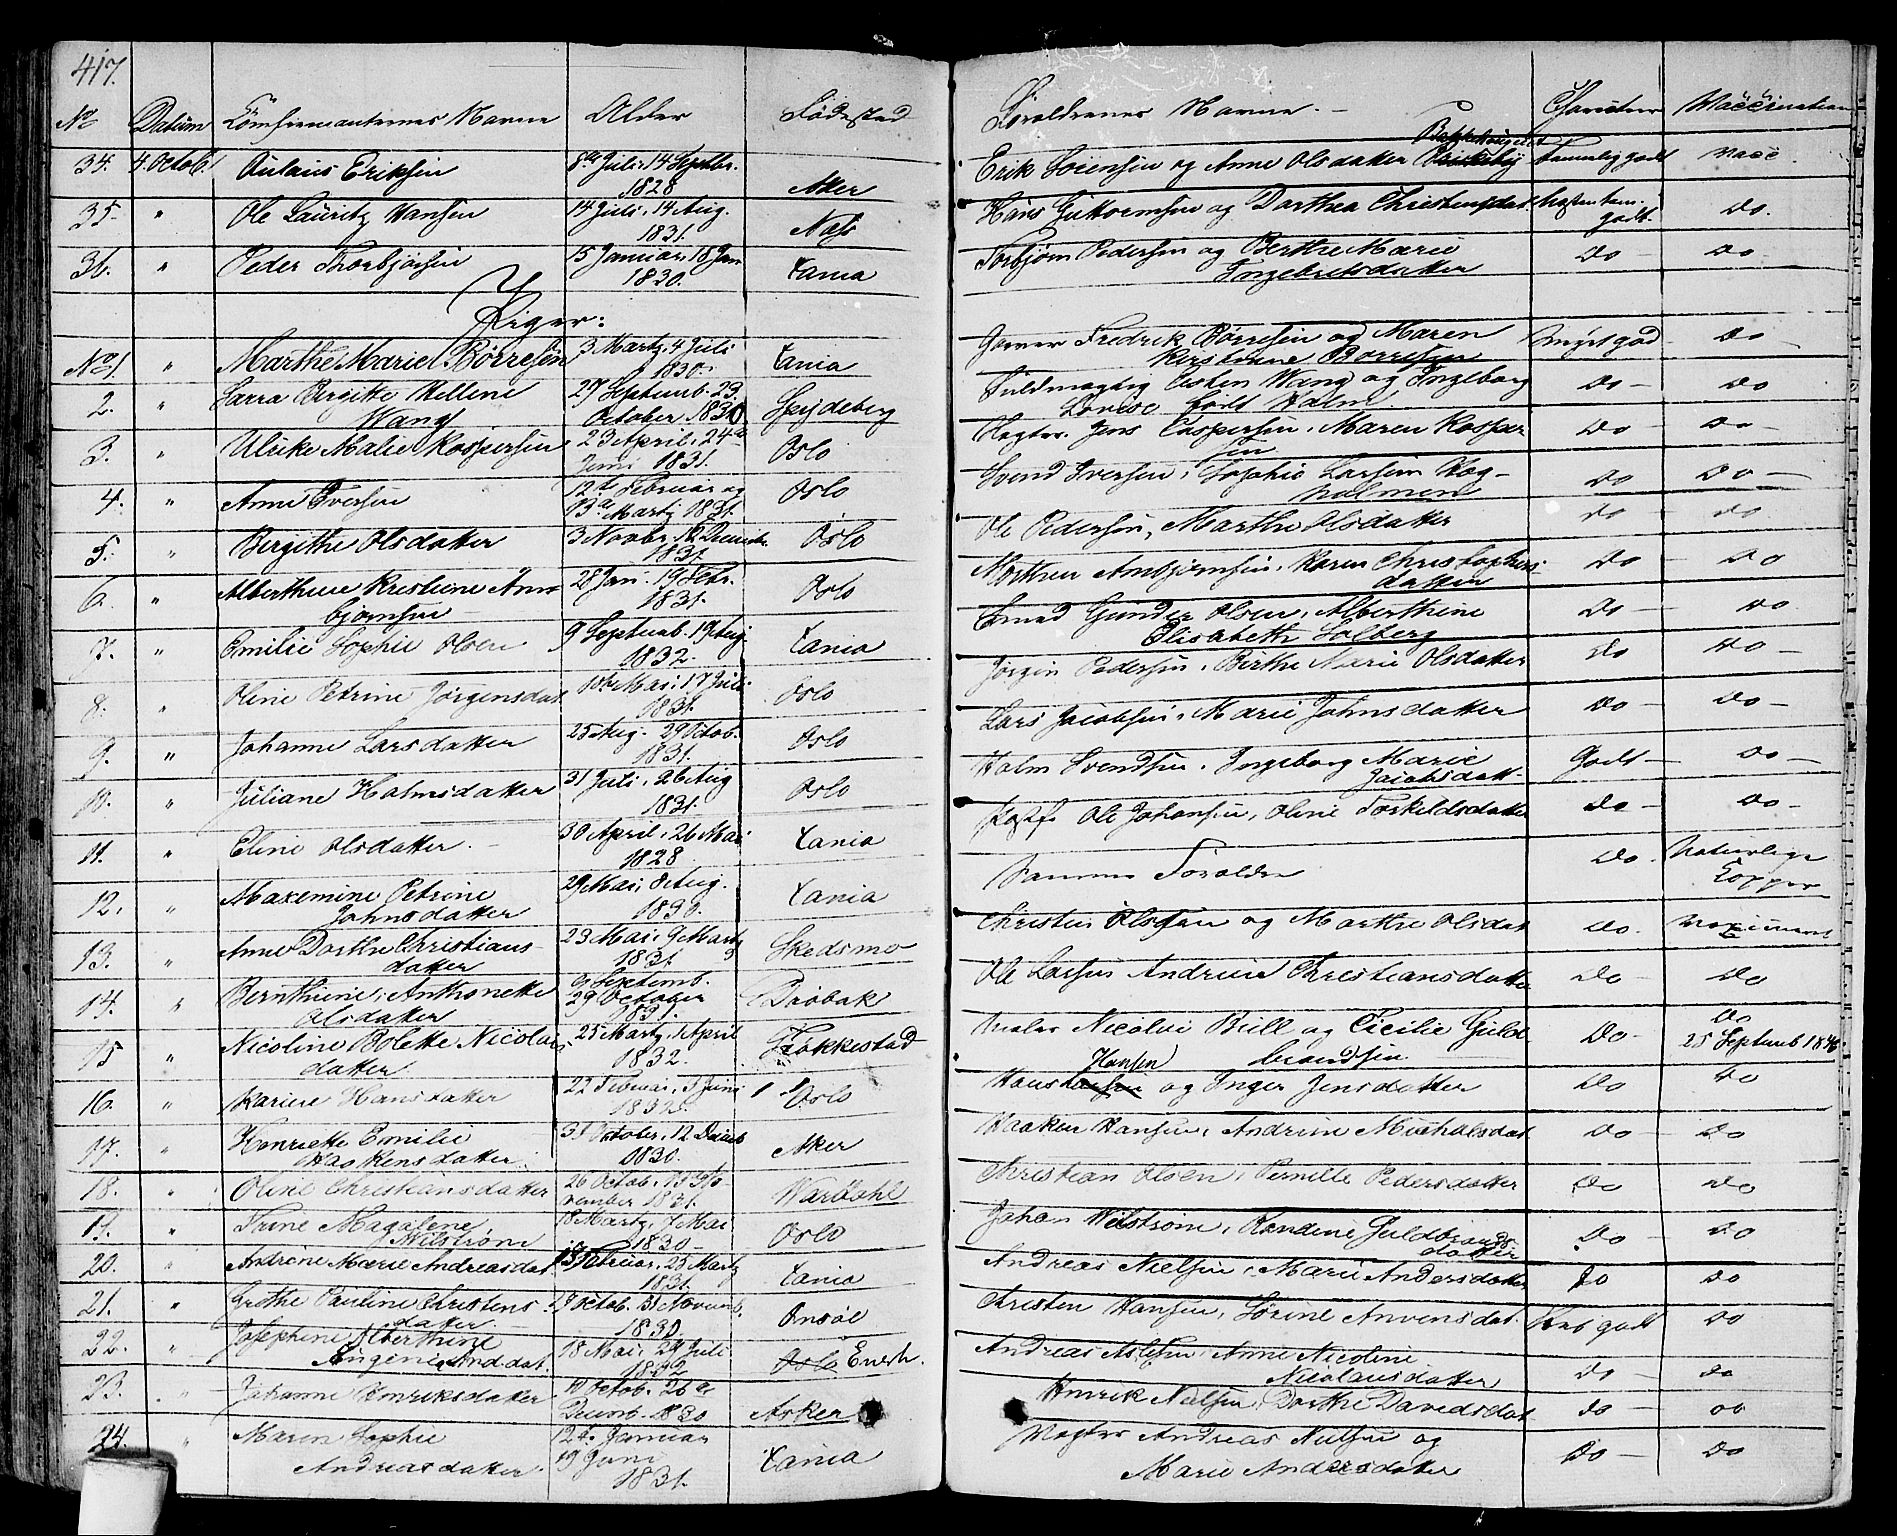 417.
No Datum Confirmanternes Navne Alder Födested Forældrenes Navne. Charakter Vaccination
34. 4. Octob. Aulaus Eriksen 8de Juli, 14 Septbr. 1828 Aker Erik Sörensen og Anne Olsdatter Temmelig godt Vacc.
35. " Ole Lauritz Hansen 14 Juli, 14 Aug. 1831. Næs Hans Guttormsen og Dorthea Christensdat. næsten tem. godt. Do.
36. " Peder Thorbjörsen 15 Januar, 18 Jan 1830. Xania Torbjörn Pedersen og Berthe Marie Ingebretsdatter Do Do
Piger:
No 1. " Marthe Marie Börresen 3 Martz, 4 Juli 1830. Xania Fredrik Börresen og Maren Kirstine Börresen Meget god Do
2. " Sarra Birgitte Hellene Wang 27 Septemb. 23. October. 1830 Spydeberg Fuldmægtig Eisten Wang og Ingeborg Lovise födt Holm. Do Do
3. " Ulrike Malie Kaspersen 23 April, 24de Juni 1831. Oslo Jens Caspersen, Maren Kaspersen Do Do
4. " Anne Iversen 12te Februar og 13de Martz 1831. Oslo Svend Iversen, Sophie Larsen Hogholmen Do Do
5. " Bergithe Olsdatter 3 Novbr. 12 Decemb. 1831 Oslo Ole Pedersen, Marthe Olsdatter Do Do
6. " Alberthine Kristine Arnbjörnsen 28 Jan. 19 Febr. 1831. Oslo Morthen Arnbjörnsen, Karen Christophersdatter Do Do
7. " Emilie Sophie Olsen 9 Septemb. 19 Aug 1832. Xania Smed Gunder Olsen, Alberthine Elisabeth Solberg Do Do
8. " Oline Petrine Jörgensdat. 10de Mai, 17 Juli 1831. Oslo Jörgen Pedersen, Birthe Marie Olsdatter Do Do
9. " Johanne Larsdatter 25 Aug. 29 Octob. 1831. Oslo Lars Jacobsen, Marie Johnsdatter Do Do
10. " Juliane Holmsdatter 31 Juli, 26 Aug 1831. Oslo Holm Svendsen, Ingeborg Marie Jacobsdatt. Godt Do
11. " Eline Olsdatter 30 April, 26 Mai 1828 Xania Ole Johansen, Oline Torkildsdatter Do Do
12. " Maxemine Petrine Johnsdatter 29 Mai, 8 Aug. 1830. Xania Samme Foraldre Do. Naturlige Kopper
13. " Anne Dorthe Christiansdatter 23 Mai, 9 Martz 1831. Skedsmo Christen Olsen og Marthe Olsdat Do.
14. " Bernthine, Anthonette Olsdatter 9 Septemb. 29 October 1831. Dröbak Ole Larsen Andrine Christiansdatter Do Do
15 " Nicoline Bolette Nicolaisdatter 25 Martz, 1 April 1832. Nicolai Bull og Cicilie Guldbrandsen. Do Do 25 Septemb 1846
16. " Karine Hansdatter 22 Februar, 3 Juni 1832. Oslo Hans Hansen og Inger Jensdatter Do Do
17. " Henriette Emilie Haakensdatter. 31 October, 12 Decemb 1830. Aker Haaken Hansen, Andrine Micholsdat. Do Do
18. " Oline Christiansdatter 26 Octob. 13 November 1831. Wardahl Christian Olsen, Pernille Pedersdatter Do Do
19. " Trine Magalene Nilström 18 Martz, 7 Mai 1830 Oslo Johan Nilström, Guldbrandsdatter Do Do
20. " Andrine Marie Andreasdat. 13 Februar, 25 Martz 1831. Xania Andreas Nielsen, Marie Andersdatter Do Do
21. " Grethe Pauline Christensdatter. Octob. 31 Novemb. 1830. Onsöe Christen Hansen, Sörine Arvensdat. godt Do
22. " Josephine Alberthine Andrdat. 18 Mai, 29 Juli Oslo Andreas Anne Nicoline Nicolausdatter Do Do
23. " Johanne Henriksdatter 10 Octob. 26de Decmb. 1830 Asker Henrik Nielsen, Dorthe Davidsdat Do Do
24. " Maren Sophie Andreasdatter. 12te Januar 19 Juni 1831. Xania Andreas Nielsen og Marie Andersdatter Do Do